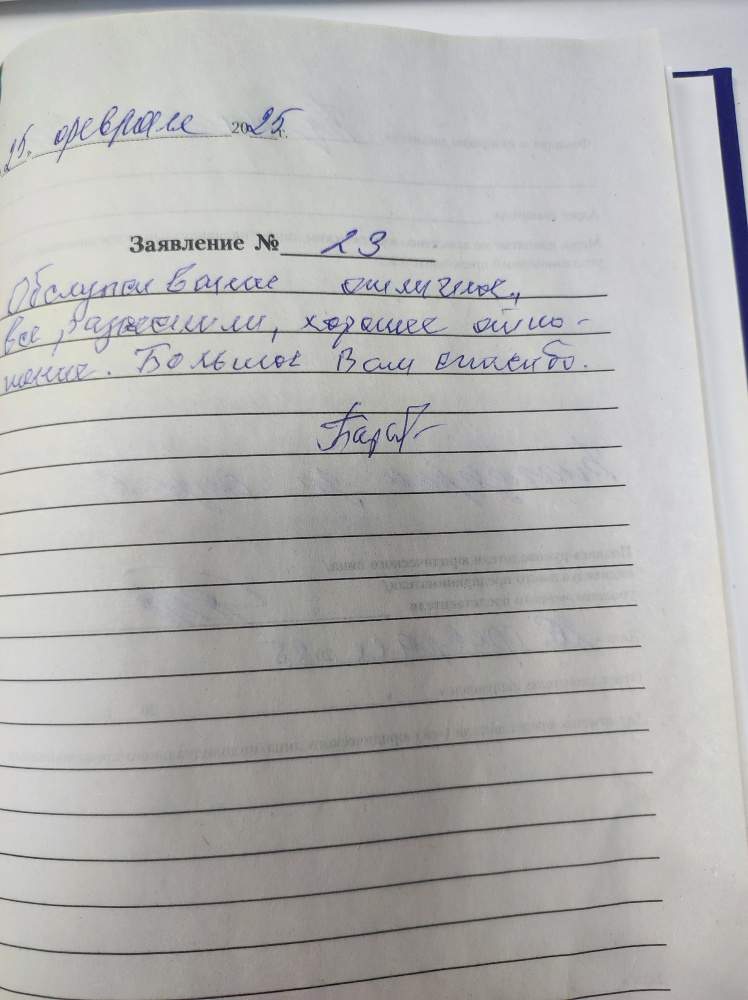 25. февраля 2025г.
Заявление № 23
Обслуживание отличное,
все разъяснили, хорошее отно-
шение. Большое Вам спасибо.